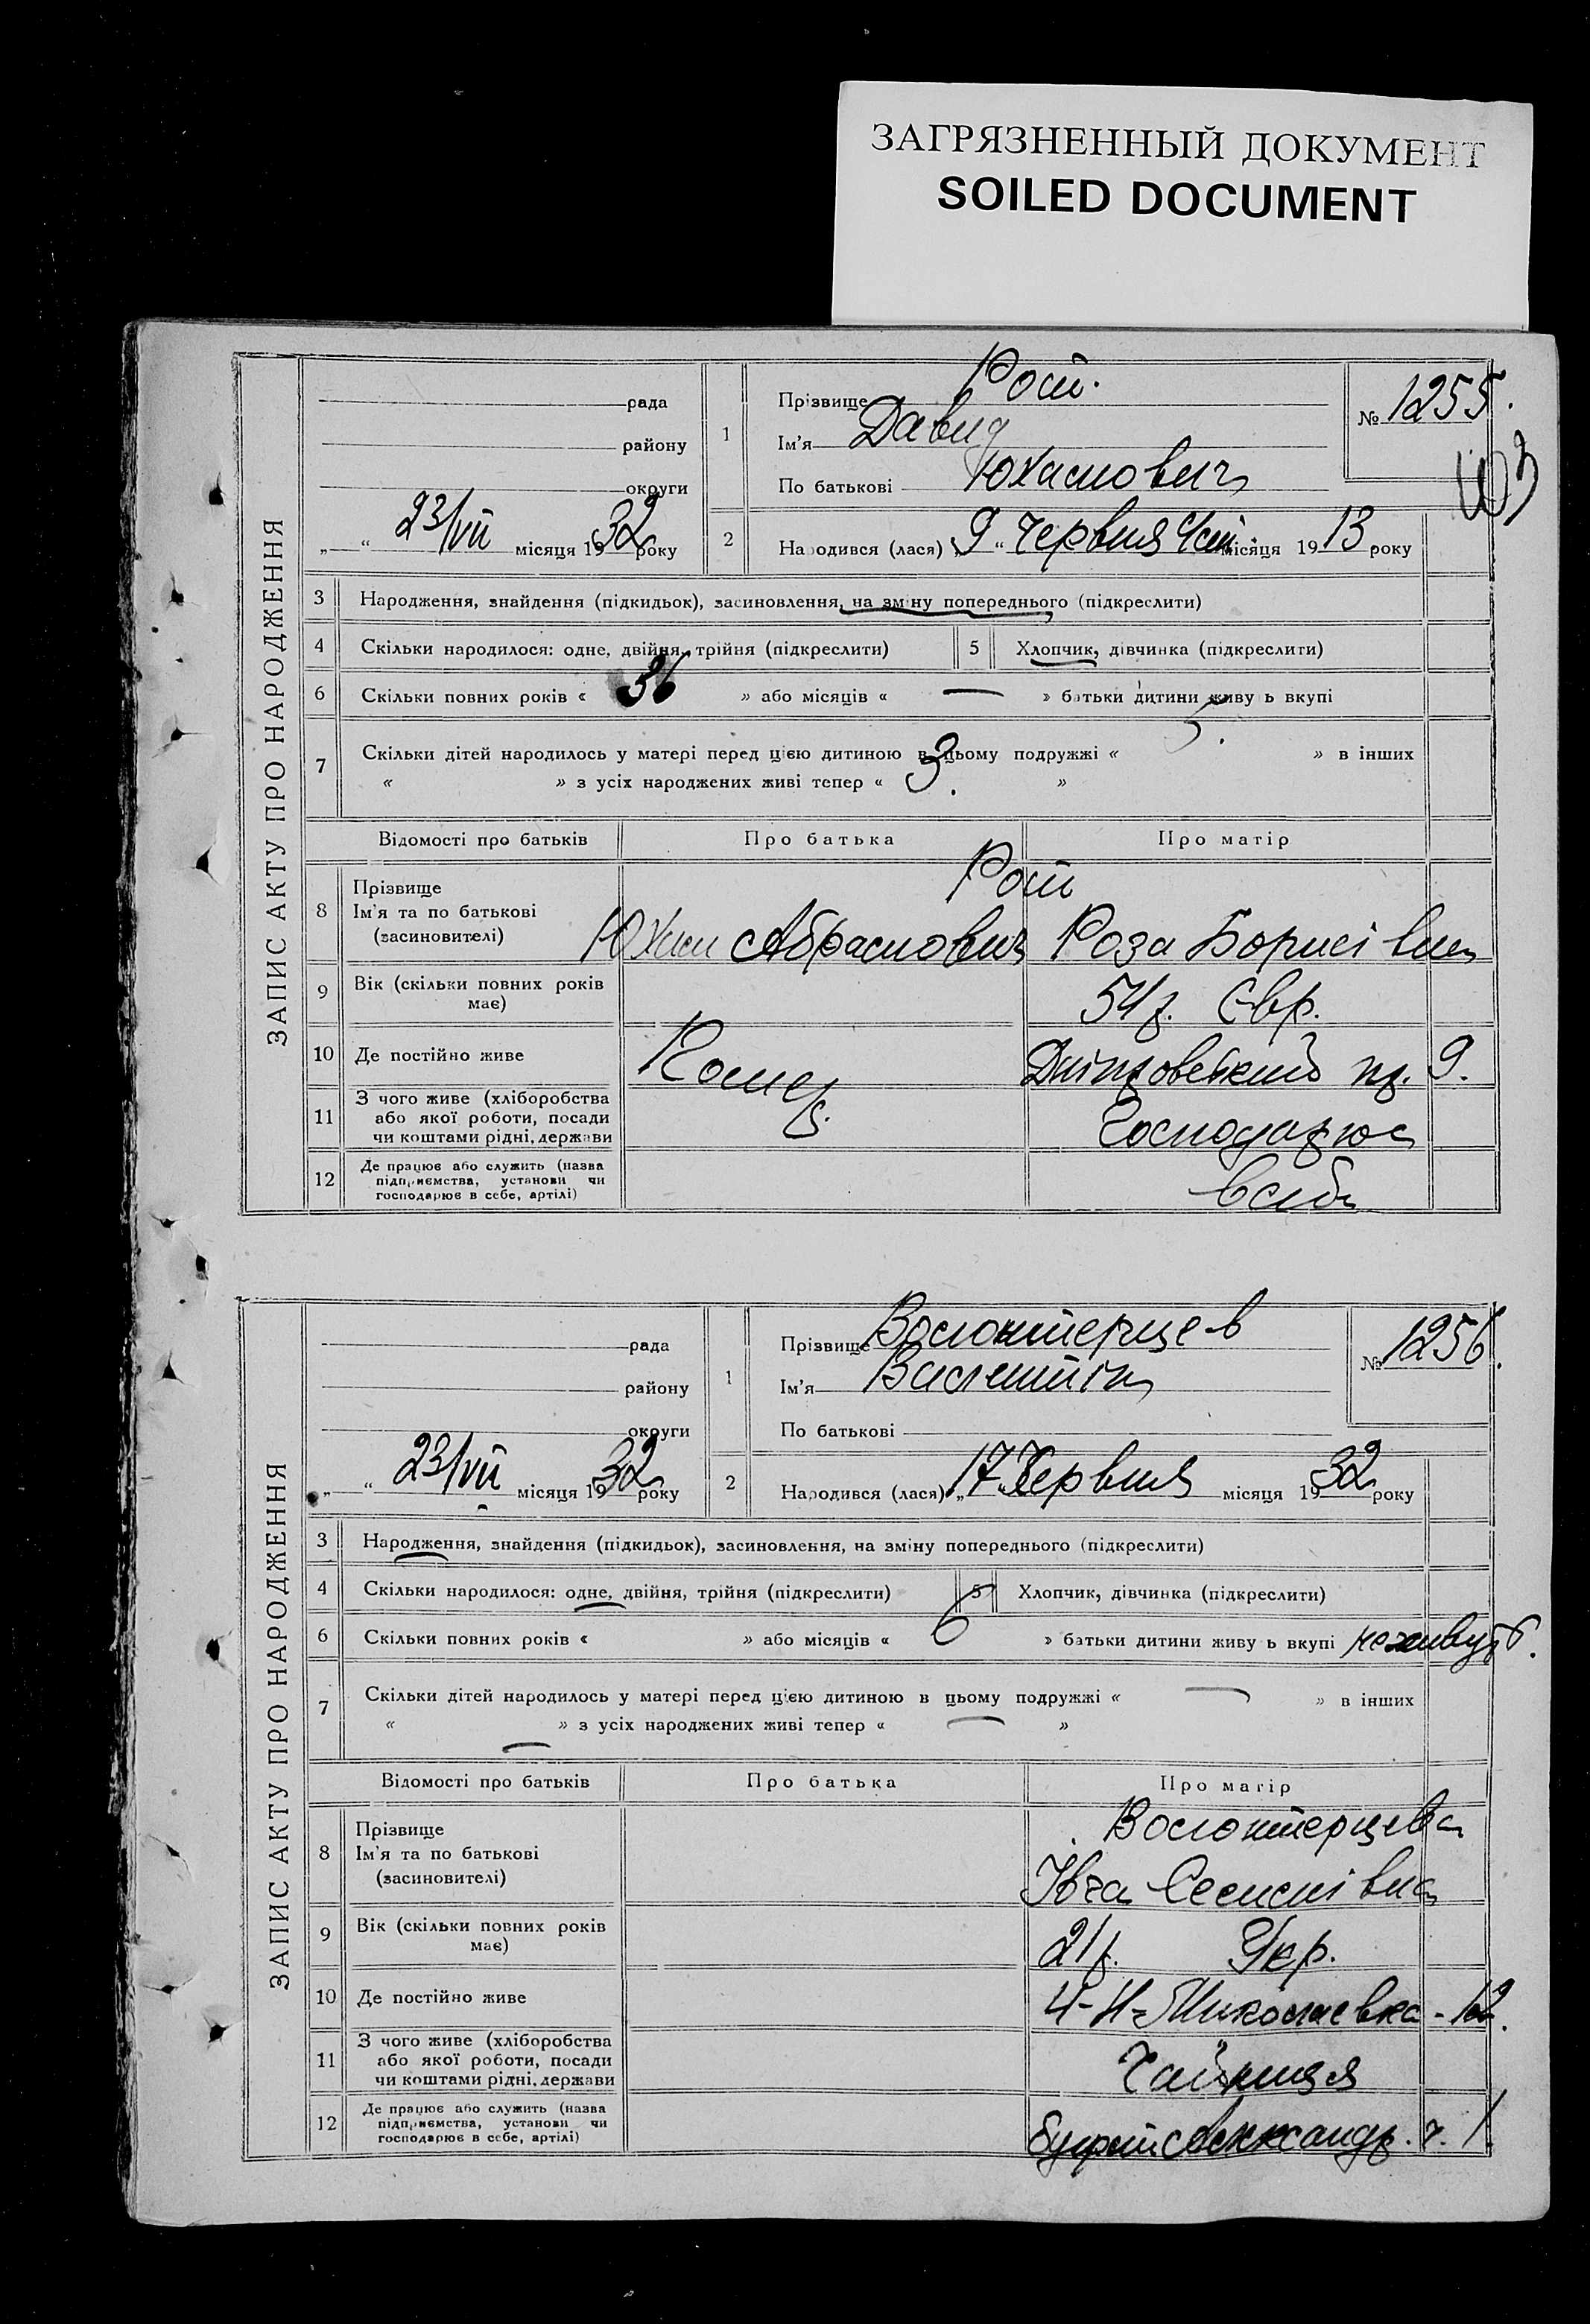 ЗАГРЯЗНЕННЫЙ ДОКУМЕНТ
SOILED DOCUMENT
ЗАПИС АКТУ ПРО НАРОДЖЕННЯ
рада
району
округи
„ “ 23/VII місяця 1932 року
1
Прізвище Рот.
Ім'я Давид
По батькові Юхимович
№ 1255.
103
2
Народився (лася) „9“ Червня ст. місяця 1913 року
3 Народження, знайдення (підкидьок), засиновлення, на зміну попереднього (підкреслити)
4 Скільки народилося: одне, двійня, трійня (підкреслити)
5 Хлопчик, дівчинка (підкреслити)
6 Скільки повних років « 36 » або місяців « — » батьки дитини живуть вкупі
7 Скільки дітей народилось у матері перед цією дитиною в цьому подружжі « 5. » в інших
« » з усіх народжених живі тепер « 3. »
Відомості про батьків Про батька Про матір
8 Прізвище
Ім'я та по батькові
(засиновителі)
Рот
Юхим Абрамович Роза Борисівна
9 Вік (скільки повних років має)
54 р. Євр.
10 Де постійно живе
Помер.
Дніпровський пр. 9.
11 З чого живе (хліборобства
або якої роботи, посади
чи коштами рідні, держави
Господарює
12 Де працює або служить (назва
підприємства, установи чи
господарює в себе, артілі)
ЗАПИС АКТУ ПРО НАРОДЖЕННЯ
рада
району
округи
„ “ 23/VII місяця 1932 року
1
Прізвище Волонтерцев
Ім'я Валентін
По батькові
№ 1256.
2
Народився (лася) „17“ Червня місяця 1932 року
3 Народження, знайдення (підкидьок), засиновлення, на зміну попереднього (підкреслити)
4 Скільки народилося: одне, двійня, трійня (підкреслити)
5 Хлопчик, дівчинка (підкреслити)
6 Скільки повних років « » або місяців « 6 » батьки дитини живуть вкупі не живуть.
7 Скільки дітей народилось у матері перед цією дитиною в цьому подружжі « — » в інших
« — » з усіх народжених живі тепер « — »
Відомості про батьків Про батька Про матір
8 Прізвище
Ім'я та по батькові
(засиновителі)
Волонтерцева
Івга Семенівна
9 Вік (скільки повних років має)
21 р. Укр.
10 Де постійно живе
Ч-Н-Миколаевка - 12.
11 З чого живе (хліборобства
або якої роботи, посади
чи коштами рідні, держави
12 Де працює або служить (назва
підприємства, установи чи
господарює в себе, артілі)
буфет Александр. 1.